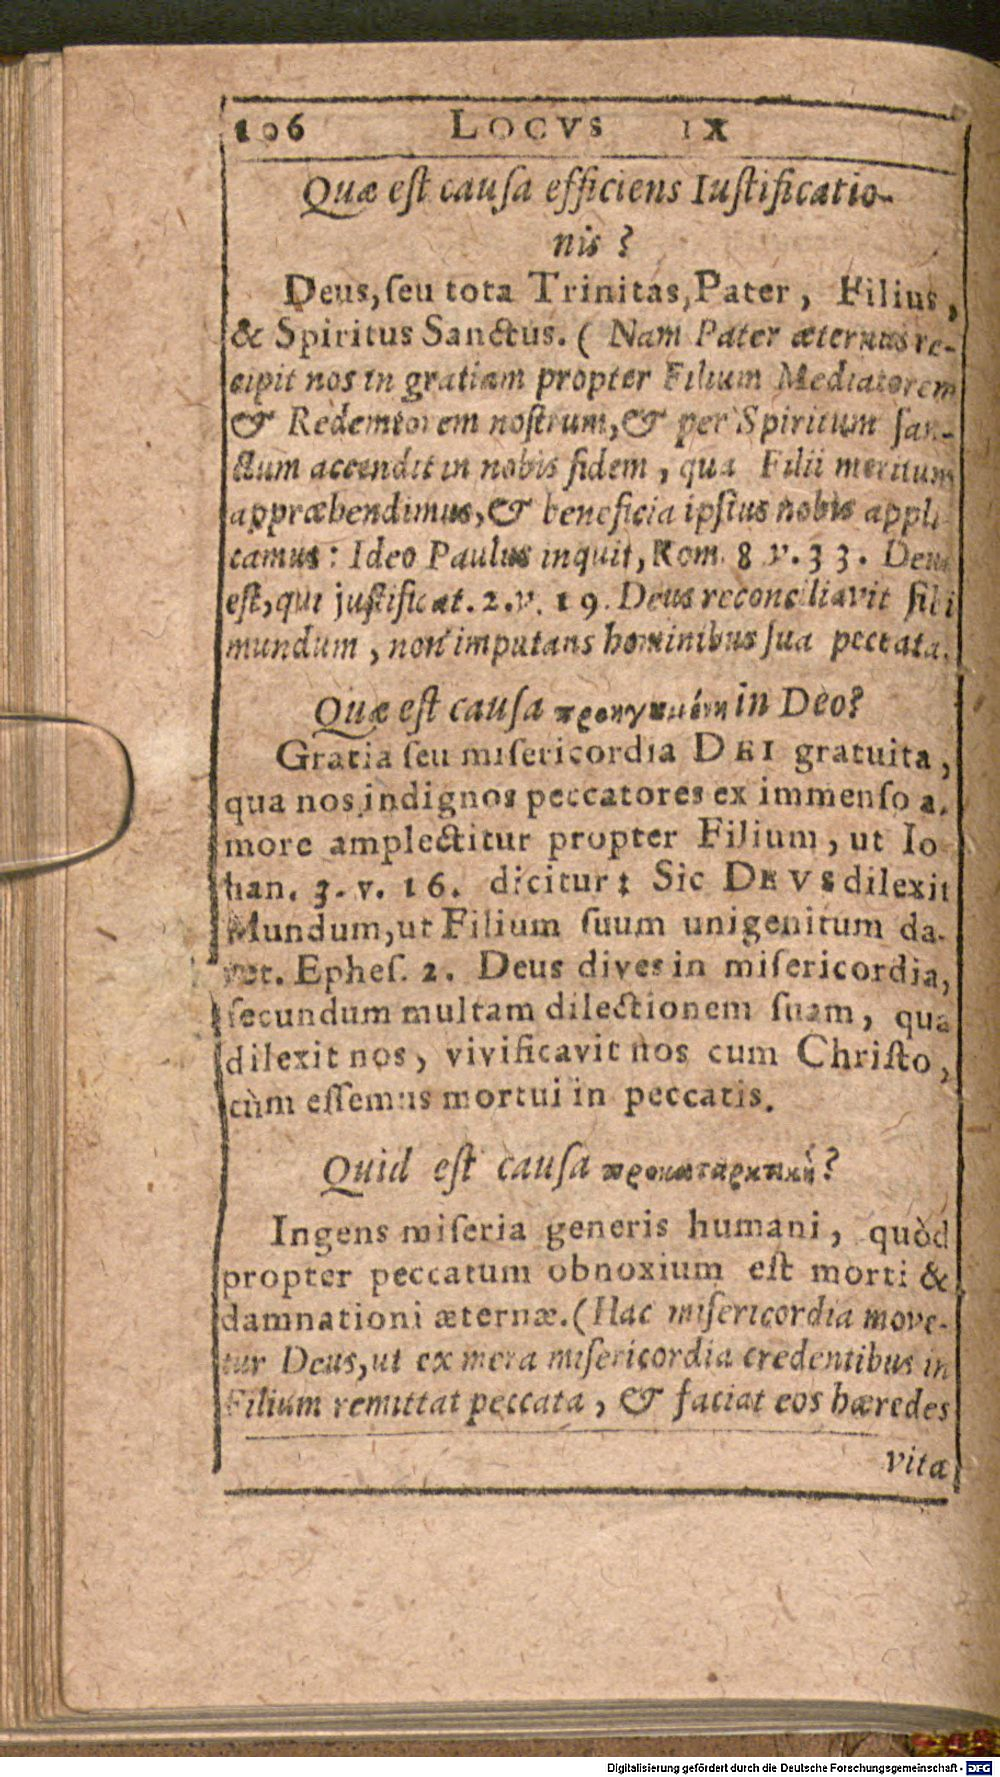 106 LOCVS IX
Quæ eſt cauſa efficiens Iuſtificatio-
nis ?
Deus, ſeu tota Trinitas, Pater, Filius,
& Spiritus Sanctus. ( Nam Pater æternus re-
cipit nos in gratiam propter Filium Mediatorem
& Redemtorem noſtrum, & per Spiritum ſan-
ctum accendit in nobis fidem, qua Filii meritum
appræhendimus, & beneficia ipſius nobis appli
camus: Ideo Paulus inquit, Rom. 8 v. 33. Deus
eſt, qui juſtificat. 2. v. 19. Deus reconciliavit ſibi
mundum, non imputans hominibus ſua peccata.
Quæ eſt cauſa προηγουμένη in Deo?
Gratia ſeu miſericordia DEI gratuita,
qua nos indignos peccatores ex immenſo a.
more amplectitur propter Filium, ut Io
han. 3. v. 16. dicitur: Sic DEVS dilexit
Mundum, ut Filium ſuum unigenitum da-
ret. Epheſ. 2. Deus dives in miſericordia,
ſecundum multam dilectionem ſuam, qua
dilexit nos, vivificavit nos cum Chriſto,
cùm eſſemus mortui in peccatis.
Quid eſt cauſa προκαταρκτικὴ?
Ingens miſeria generis humani, quòd
propter peccatum obnoxium eſt morti &
damnationi æternæ. (Hac miſericordia move-
tur Deus, ut ex mera miſericordia credentibus in
Filium remittat peccata, & faciat eos hæredes
vitæ
Digitalisierung gefördert durch die Deutsche Forschungsgemeinschaft - DFG